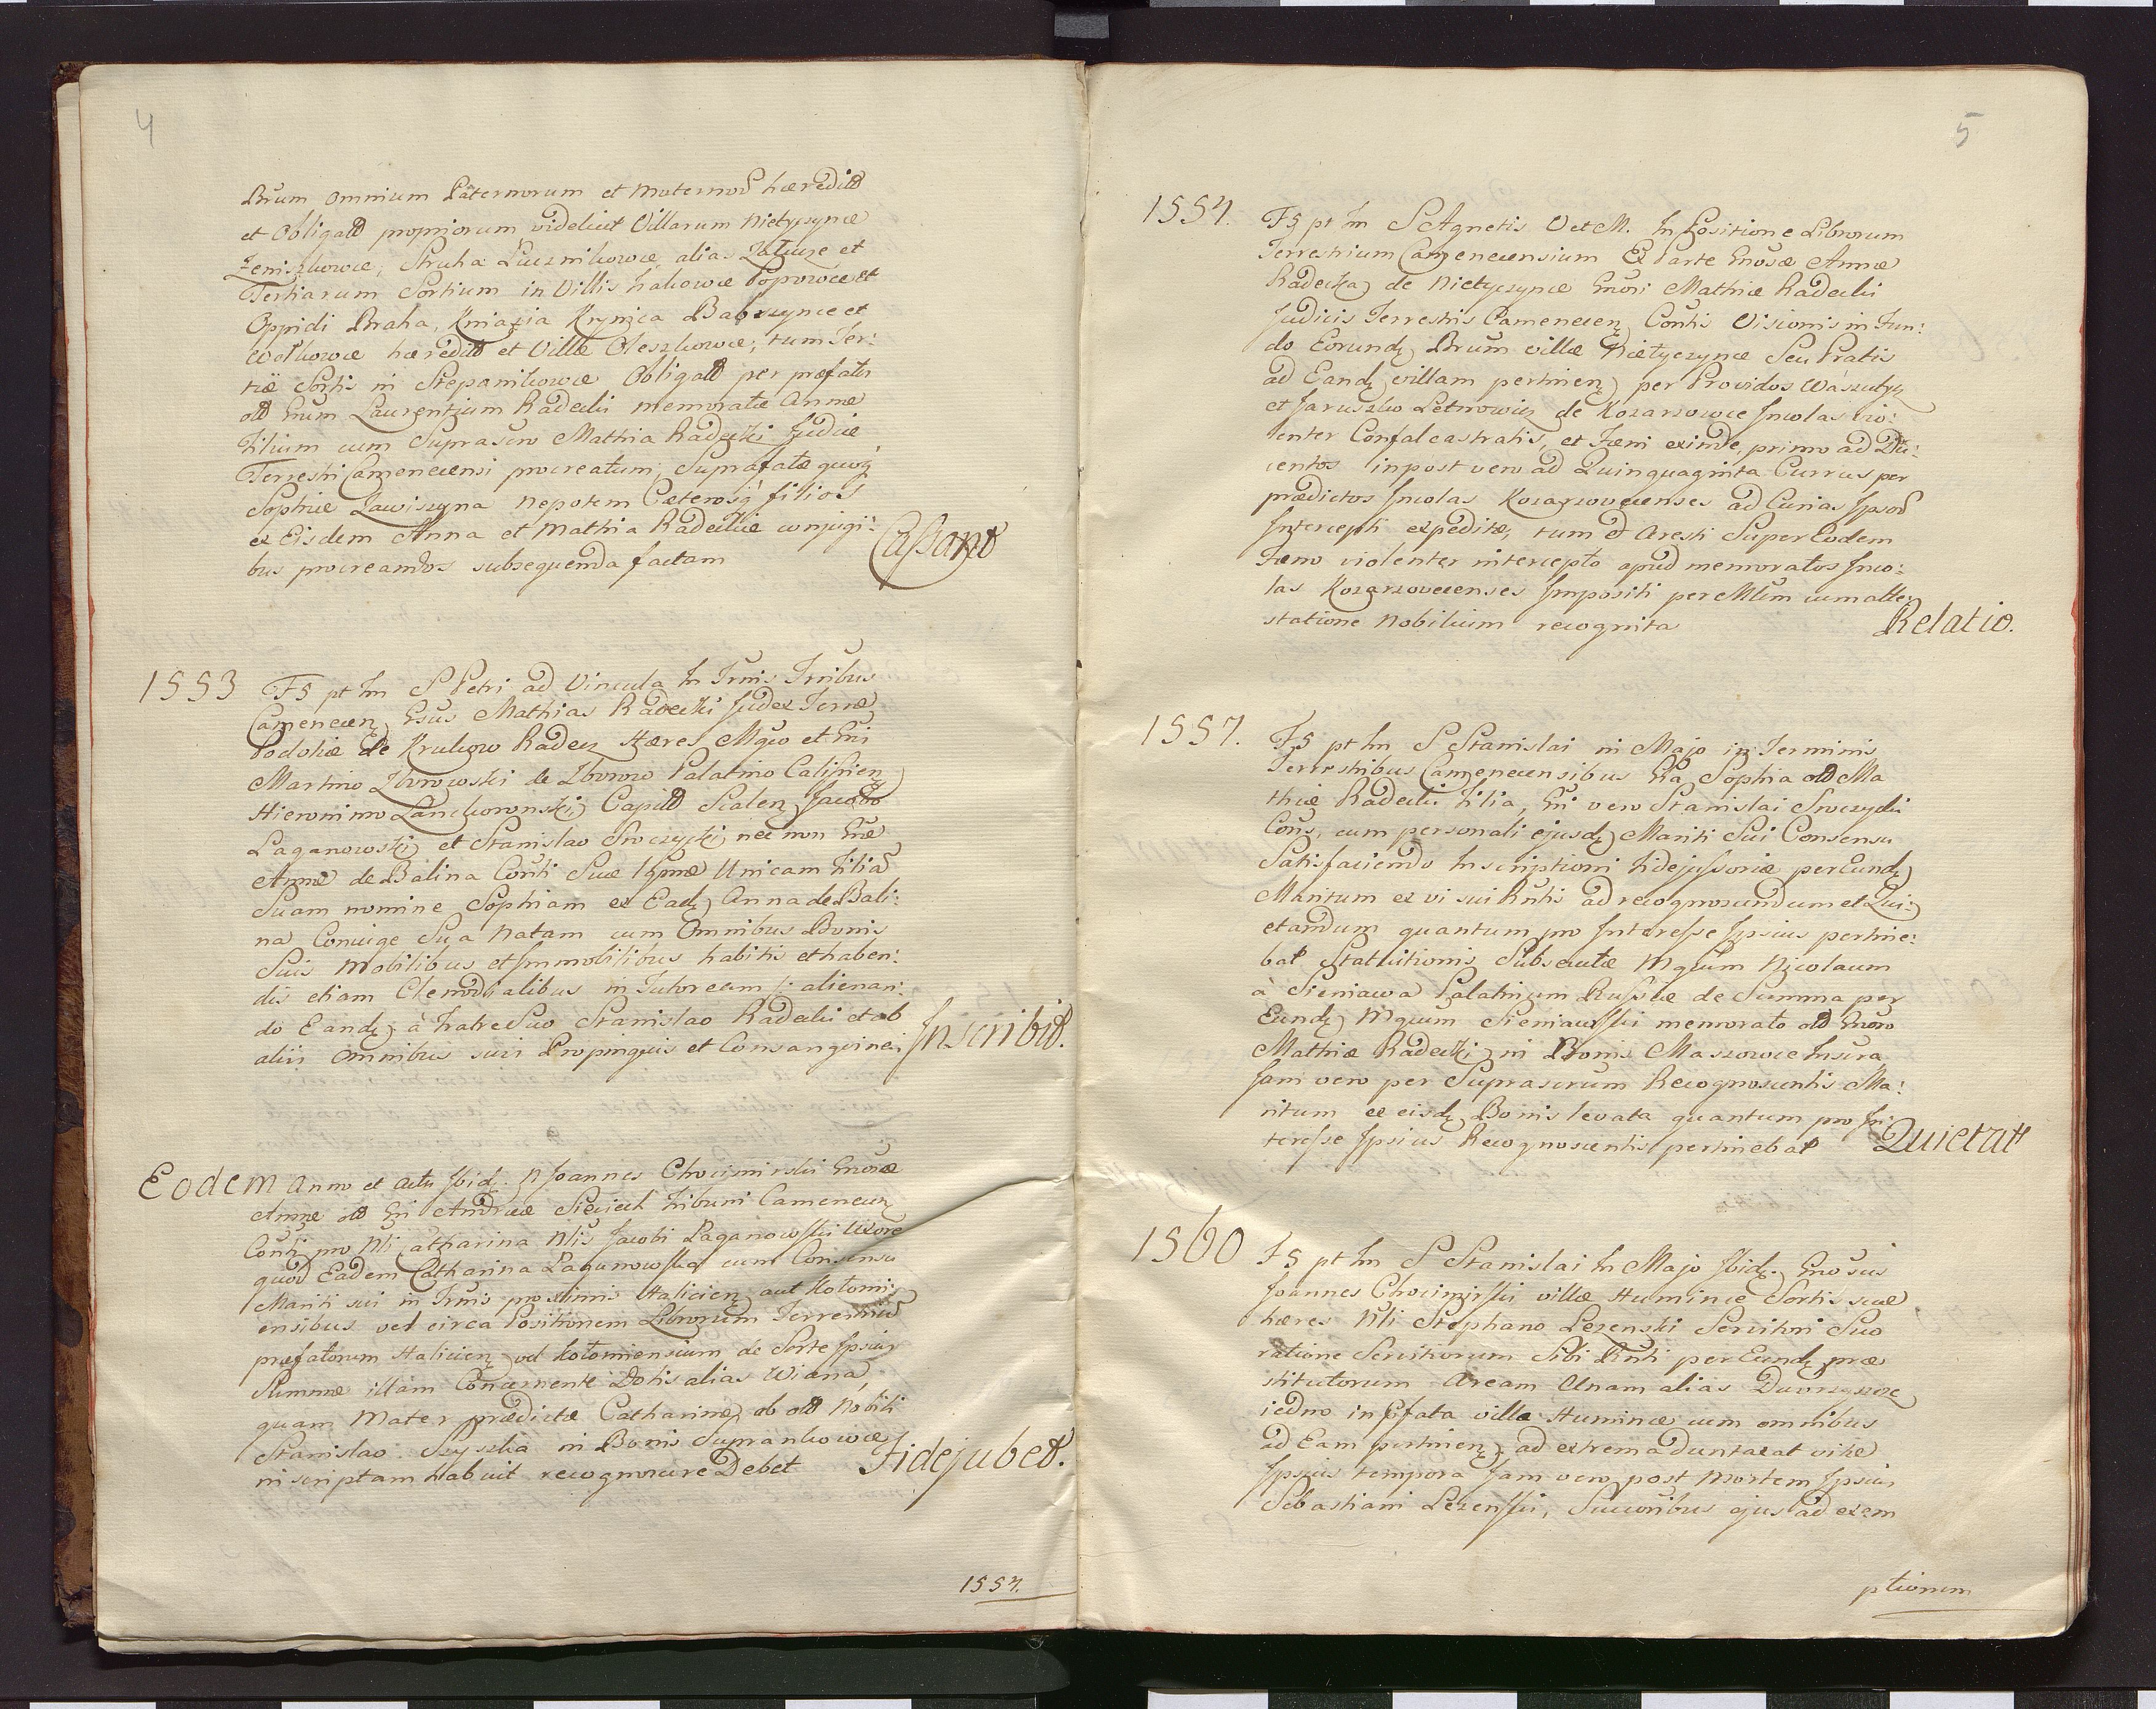 4
Brum omnium Paternorum et maternor hæredit
et Obligat propriorum videlicet Villarum Nietyczynce
Zeniszkowce, Struha Łucznikowce alias Zatuze et
Tertiarum Sortium in Villis hakowce Poprowce et
Oppidi Braha, Kniazia Krynica Babszynce et
Wołkowce hæredit et Villæ Oleszkowce, tum Ter:
tiæ Sortis in Stepanikowce Obligat per præfatu
olt Gnum Laurentzium Radecki memoratæ Annæ
filium cum Suprascrn Mathia Radecki Judice
Terrestri Camenecensi procreatum, Suprafatæ quoq
Sophiæ Lawiszyna nepotem Cæterosq filios
ex Eisdem Anna et Mathia Radeckie conjugi:
bus procreandos subsequenda factam Cassant
1553 Fs pt Im S Petri ad Vincula In Trmis Trribus
Camenecen Gsus Mathias Radecki Judex Terræ
Podoliæ de Krukow Radecz Hæres Mgco et Gni
Martino Zborowski de Zborow Palatino Calisien
Hieronimo Lanckoronski Capitt Scalen Jacobo
Laganowski et Stanislao Sroczycki nec non Gnæ
Annæ de Balina Conti Suæ 1gmæ Unicam filia
Suam nomine Sophiam ex Ead Anna de Bali:
na Coniuge Sua Natam cum Omnibus Bonis
Suis Mobilibus et Immobilibus habitis et haben:
dis etiam Clenodialibus in Tutoream /: alienan:
do Eand à fratre Suo Stanislao Radecki et ab
aliis omnibus suis Propinquis et Consanguineis Inscribit.
Eodem Anno et Actu Ibid. N Joannes Chocimirski Gnosæ
Annæ olt Gni Andreæ Sieciech Tribuni Camenecen
Conti pro Nli Catharina Nlis Jacobi Laganowski Uxore
quod Eadem Catharina Laganowska cum Consensu
Mariti sui in Trmis proximis Halicien aut Kolomi
ensibus vel circa Positionem Librorum Terrestriu
præfatorum Halicien vel Kolomiensium de Sorte Ipsius
Summæ illam Concernente Dotis alias Wiana
quam Mater prædictæ Catharinæ ab olt Nobili
Stanislao Szyszka in Bonis Suprankowce
inscriptam habuit recognoscere Debet Fidejubet.
1554.
5
1554. Fs pt Im S Agnetis V et M. In Positione Librorum
Terrestrium Camenecensium Ex Parte Gnosæ Annæ
Radecka de Nietyczynce Gnosi Mathiæ Radecki
Judicis Terrestris Camenecen Contis Visionis in Fun:
do Eorund Brum villæ Nietyczynce Seu Pratis
ad Eand villam pertinen per Providos Waszutyz
et Jaruszko Petrowicz de Kozarzowce Incolas vio:
lenter Confalcastratis, et Fæni exinde, primo ad Du:
centos inpost vero ad Quinquaginta Currus per
prædictos Incolas Kozarzovecenses ad Curias Ipsor
Intercepti expeditæ, tum et Aresti Super Eodem
Fæno violenter intercepto apud memoratos Inco:
las Kozarzovecenses Impositi per Mlem cum atte
statione Nobilium recognita Relatio.
1557. Fs pt Im S Stanislai in Majo in Terminis
Terrestribus Camenecensibus Gsa Sophia olt Ma
thiæ Radecki filia, Gni vero Stanislai Sroczycki
Cons, cum personali ejusd Mariti Sui Consensu
Satisfaciendo Inscriptioni fidejussoriæ per Eund
Maritum ex vi sui Rntis ad recognoscundum et Qui:
etandum quantum pro Interesse Ipsius pertine:
bat Statuitionis Subsecutæ Mgcum Nicolaum
à Sieniawa Palatinum Russiæ de Summa per
Eund Mgcum Sieniawski memorato olt Gnoso
Mathiæ Radecki in Bonis Maszowce Inscra
Jam vero per Suprascrum Recognoscentis Ma:
ritum ex eisd Bonis levata quantum pro In
teresse Ipsius Recognoscentis pertinebat Quietatt
1560 Fs pt Im S Stanislai In Majo Ibid. Gnosus
Joannes Chocimirski villæ Humince Sortis suæ
hæres Nli Stephano Lezenski Servitori Suo
ratione Servitiorum Sibi Rnti per Eund præ
stitutorum Aream Unam alias Dworzyszcze
iedno in Pfata villa Humince cum omnibus
ad Eam pertinen ad extrema duntaxat vitæ
Ipsius tempora Jam vero post Mortem Ipsius
Sebastiani Lezenski, Successoribus ejus ad exem
ptionem